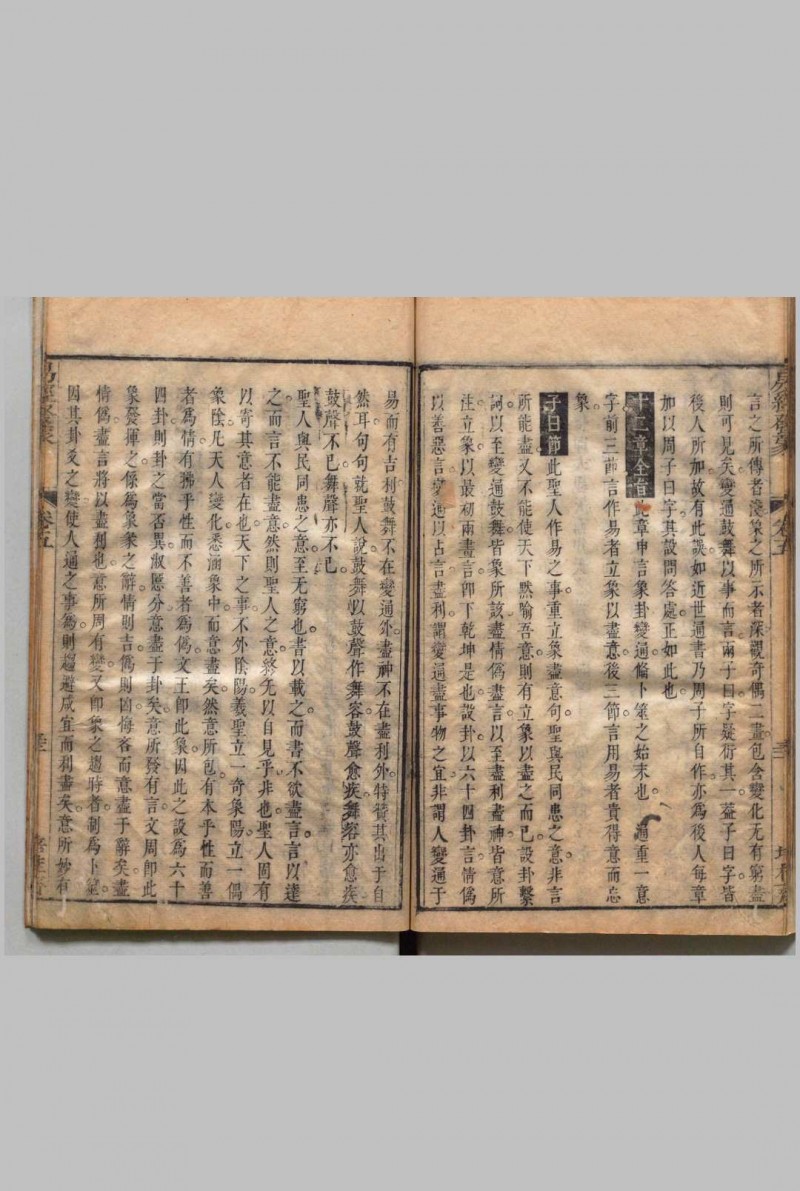 言之所傳者淺象之所示者深觀奇偶二畫包含變化无有窮盡
則可見矣變通鼓舞以事而言兩子曰字疑衍其一葢子曰字皆
後人所加故有此誤如近世通書乃周子所自作亦為後人每章
加以周子曰字其設問答處正如此也
十二章全旨此章申言象卦變通備卜筮之始末也通重一意
字前三節言作易者立象以盡意後三節言用易者貴得意而忘
象
子曰節此聖人作易之事重立象盡意句聖與民同患之意非言
所能盡又不能使天下黙喻吾意則有立象以盡之而已設卦繫
詞以至變通鼓舞皆象所該盡情僞盡言以至盡利盡神皆意所
注立象以最初兩畫言卽下乾坤是也設卦以六十四卦言情僞
以善惡言變通以占言盡利謂變通盡事物之宜非謂人變通于
易而有吉利鼓舞不在變通外盡神不在盡利外特贊其出于自
然耳句句就聖人說鼓舞以鼓聲作舞容鼓聲愈疾舞容亦愈疾
鼓聲不已舞聲亦不已
聖人與民同患之意至无窮也書以載之而書不欲盡言言以達
之而言不能盡意然則聖人之意終先以自見乎非也聖人固有
以寄其意者在也天下之事不外陰陽義聖立一奇象陽立一偶
象陰凡天人變化悉涵象中而意盡矣然意所包有本乎性而善
者為情有拂乎性而不善者為僞文王卽此象因此之設為六十
四卦則卦之當否異淑慝分意盡于卦矣意所發有言文周卽此
象發揮之係為彖象之辭情則吉僞則凶悔吝而意盡于辭矣盡
情僞盡言將以盡利也意所周有變又卽象之趨時者制為卜筮
因其卦爻之變使人通之事為則趨避咸宜而利盡矣意所妙有
卷五
卷五